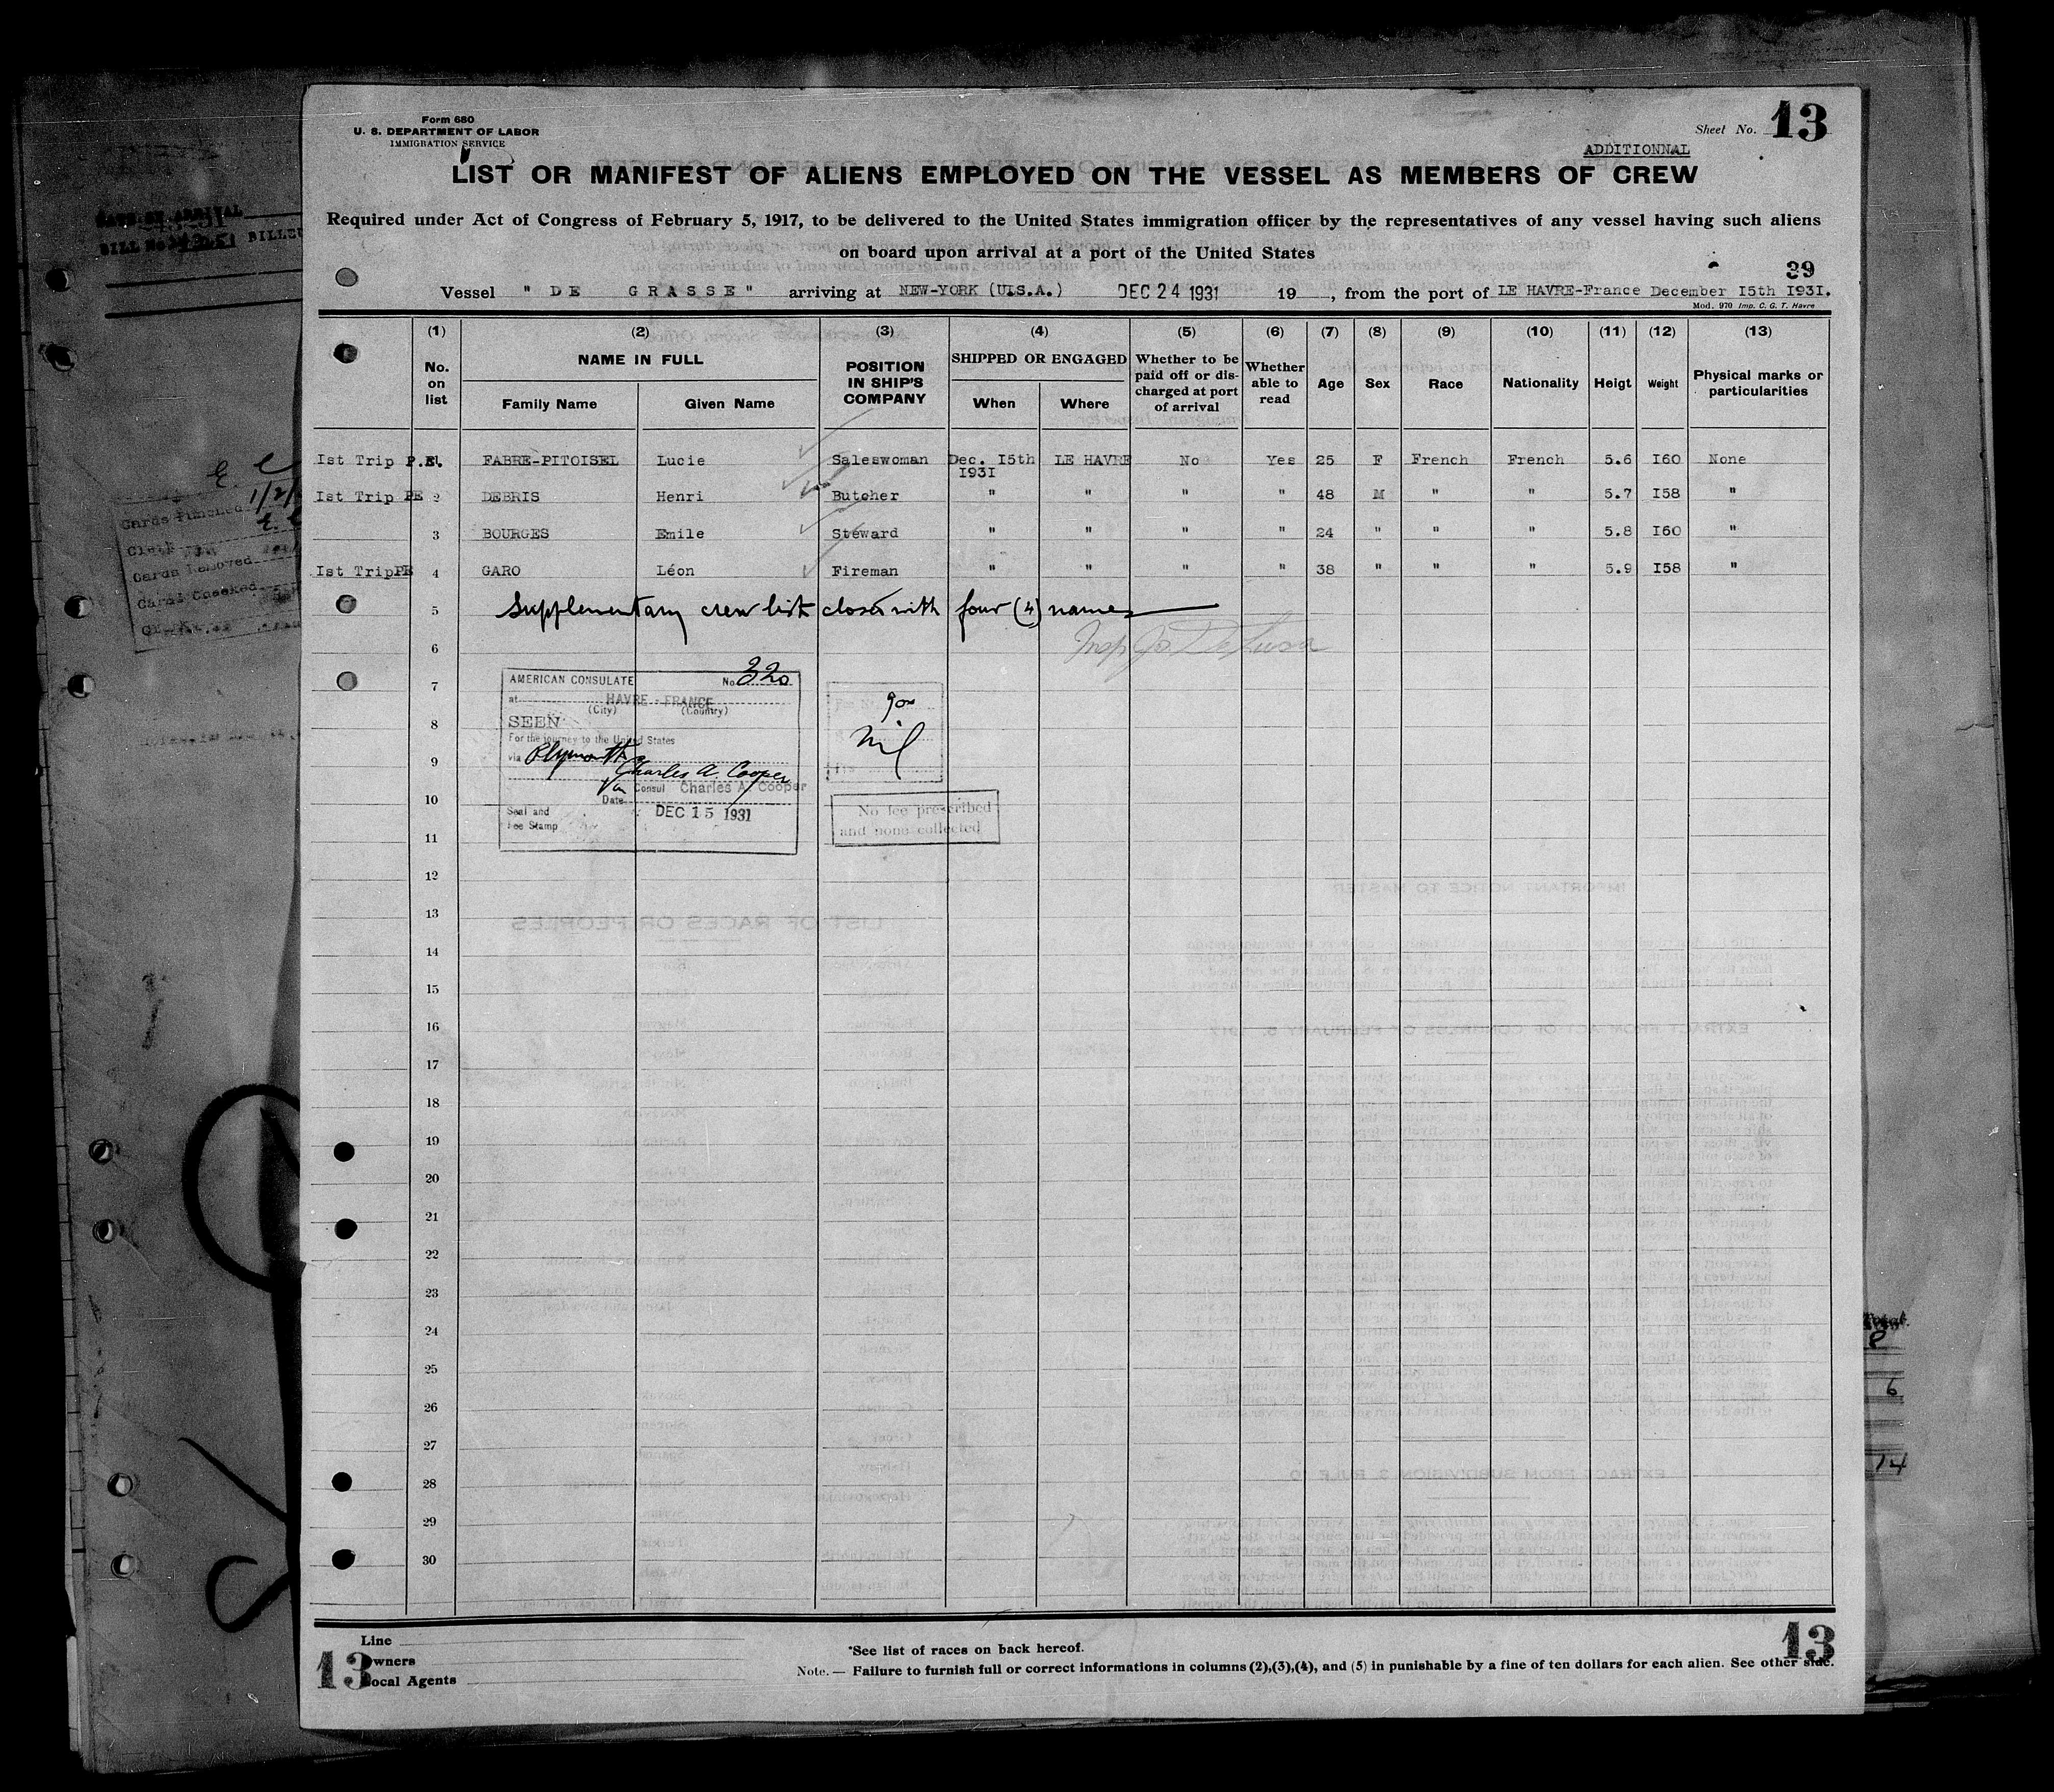 Form 680
U. S. DEPARTMENT OF LABOR
IMMIGRATION SERVICE
Sheet No. 13
ADDITIONNAL
LIST OR MANIFEST OF ALIENS EMPLOYED ON THE VESSEL AS MEMBERS OF CREW
Required under Act of Congress of February 5, 1917, to be delivered to the United States immigration officer by the representatives of any vessel having such aliens
on board upon arrival at a port of the United States
39
Vessel " DE GRASSE " arriving at NEW-YORK (UIS.A.) DEC 24 1931 19 , from the port of LE HAVRE-France December I5th I93I.
Mod. 970 Imp. C. G. T. Havre
(1) (2) (3) (4) (5) (6) (7) (8) (9) (10) (11) (12) (13)
No. on list NAME IN FULL Family Name Given Name POSITION IN SHIP'S COMPANY SHIPPED OR ENGAGED When Where Whether to be paid off or discharged at port of arrival Whether able to read Age Sex Race Nationality Heigt Weight Physical marks or particularities
Ist Trip P.E. FABRE-PITOISEL Lucie Saleswoman Dec. I5th I93I LE HAVRE No Yes 25 F French French 5.6 I60 None
Ist Trip PE 2 DEBRIS Henri Butcher " " " " 48 M " " 5.7 I58 "
3 BOURGES Emile Steward " " " " 24 " " " 5.8 I60 "
Ist Trip PE 4 GARO Léon Fireman " " " " 38 " " " 5.9 I58 "
5 Supplementary crew list closes with four (4) names
6
7
8
9
10
11
12
13
14
15
16
17
18
19
20
21
22
23
24
25
26
27
28
29
30
AMERICAN CONSULATE No. 320
at HAVRE - FRANCE
(City) (Country)
SEEN
For the journey to the United States
via Plymouth
Charles A. Cooper
Consul Charles A. Cooper
Date
DEC 15 1931
Seal and
Fee Stamp
Nil
No fee prescribed
and none collected
Line
Owners
Local Agents
13
*See list of races on back hereof.
Note. — Failure to furnish full or correct informations in columns (2),(3),(4), and (5) in punishable by a fine of ten dollars for each alien. See other side.
13
DATE OF ARRIVAL
Cards Punched
Cards Removed
Cards Checked
Total
6
14